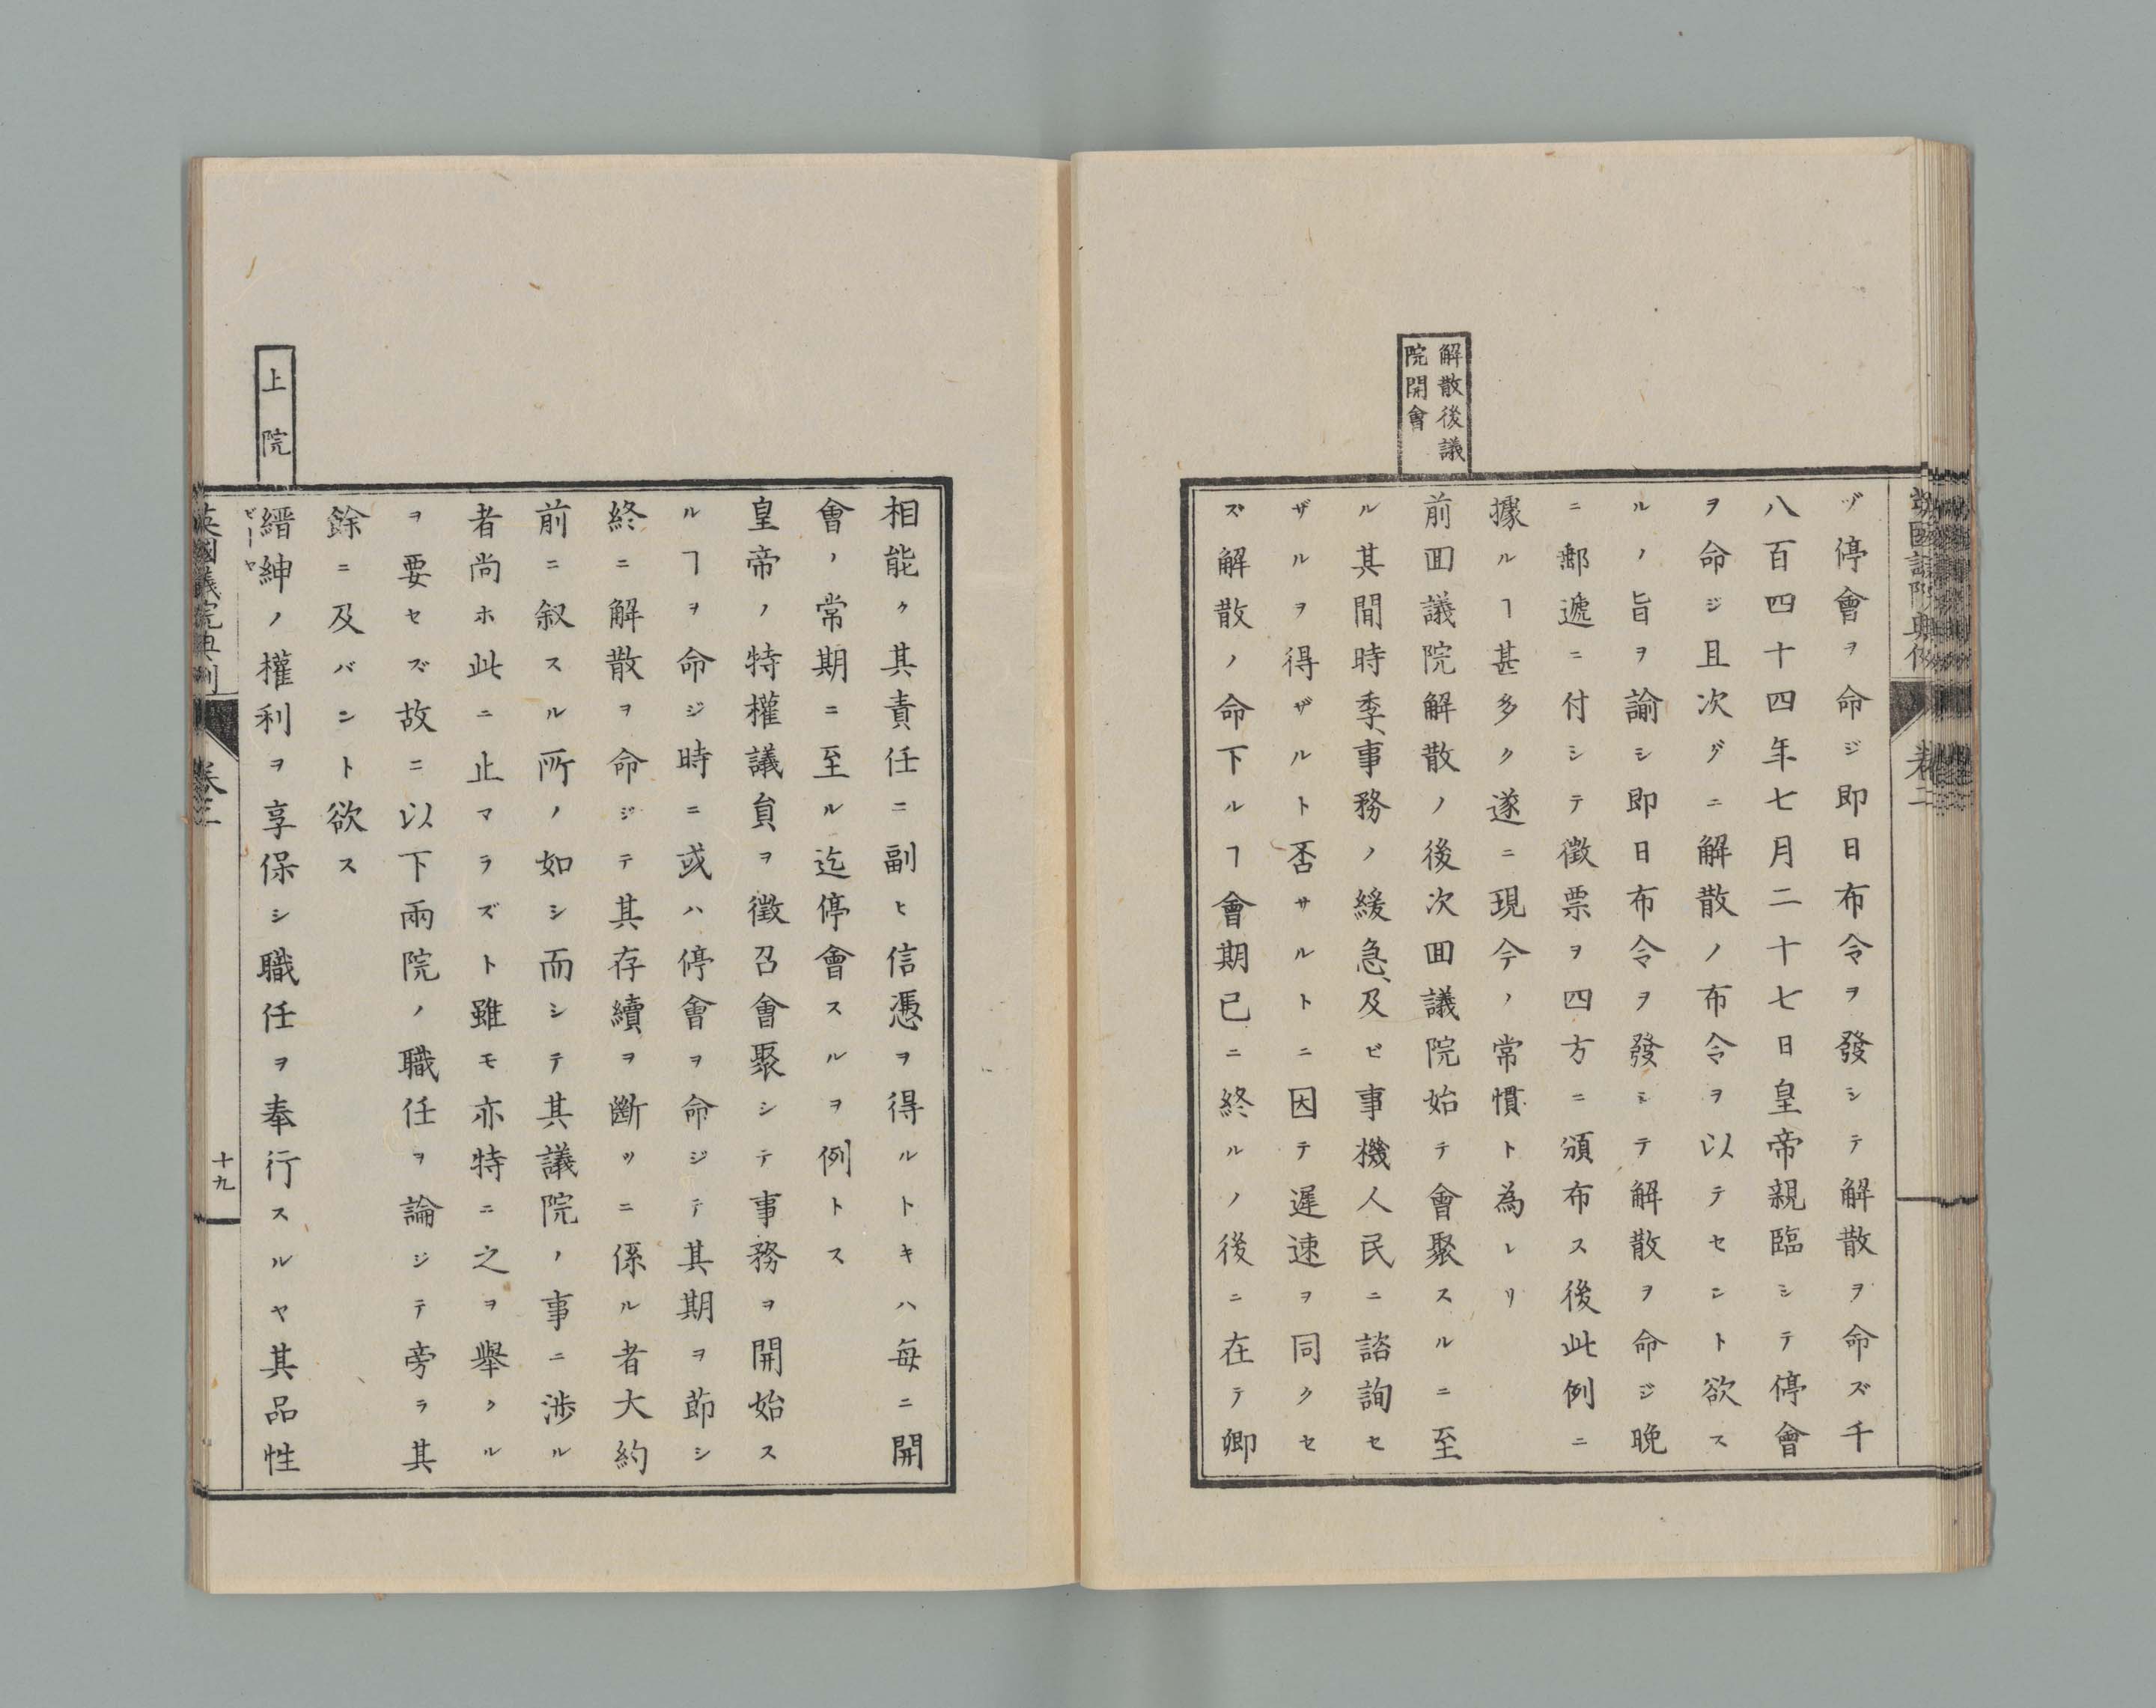 解散後議
院開會
ヅ停會ヲ命ジ即日布令ヲ發シテ解散ヲ命ズ千
八百四十四年七月二十七日皇帝親臨シテ停會
ヲ命ジ且次グニ解散ノ布令ヲ以テセント欲ス
ルノ旨ヲ諭シ即日布令ヲ發シテ解散ヲ命ジ晚
ニ郵遞ニ付シテ徵票ヲ四方ニ頒布ス後此例ニ
據ルヿ甚多ク遂ニ現今ノ常慣ト為レリ
前回議院解散ノ後次回議院始テ會聚スルニ至
ル其間時季、事務ノ緩急、及ビ事機人民ニ諮詢セ
ザルヲ得ザルト否サルトニ因テ遲速ヲ同クセ
ズ解散ノ命下ルヿ會期已ニ終ルノ後ニ在テ卿
相能ク其責任ニ副ヒ信憑ヲ得ルトキハ每ニ開
會ノ常期ニ至ル迄停會スルヲ例トス
皇帝ノ特權議員ヲ徵召會聚シテ事務ヲ開始ス
ルヿヲ命ジ時ニ或ハ停會ヲ命ジテ其期ヲ節シ
終ニ解散ヲ命ジテ其存續ヲ斷ツニ係ル者大約
前ニ叙スル所ノ如シ而シテ其議院ノ事ニ涉ル
者尚ホ此ニ止マラズト雖モ亦特ニ之ヲ舉クル
ヲ要セズ故ニ以下兩院ノ職任ヲ論ジテ旁ラ其
餘ニ及バント欲ス
上院
縉紳ノ權利ヲ享保シ職任ヲ奉行スルヤ其品性
ビーヤ
英國議院典例
卷二
十九